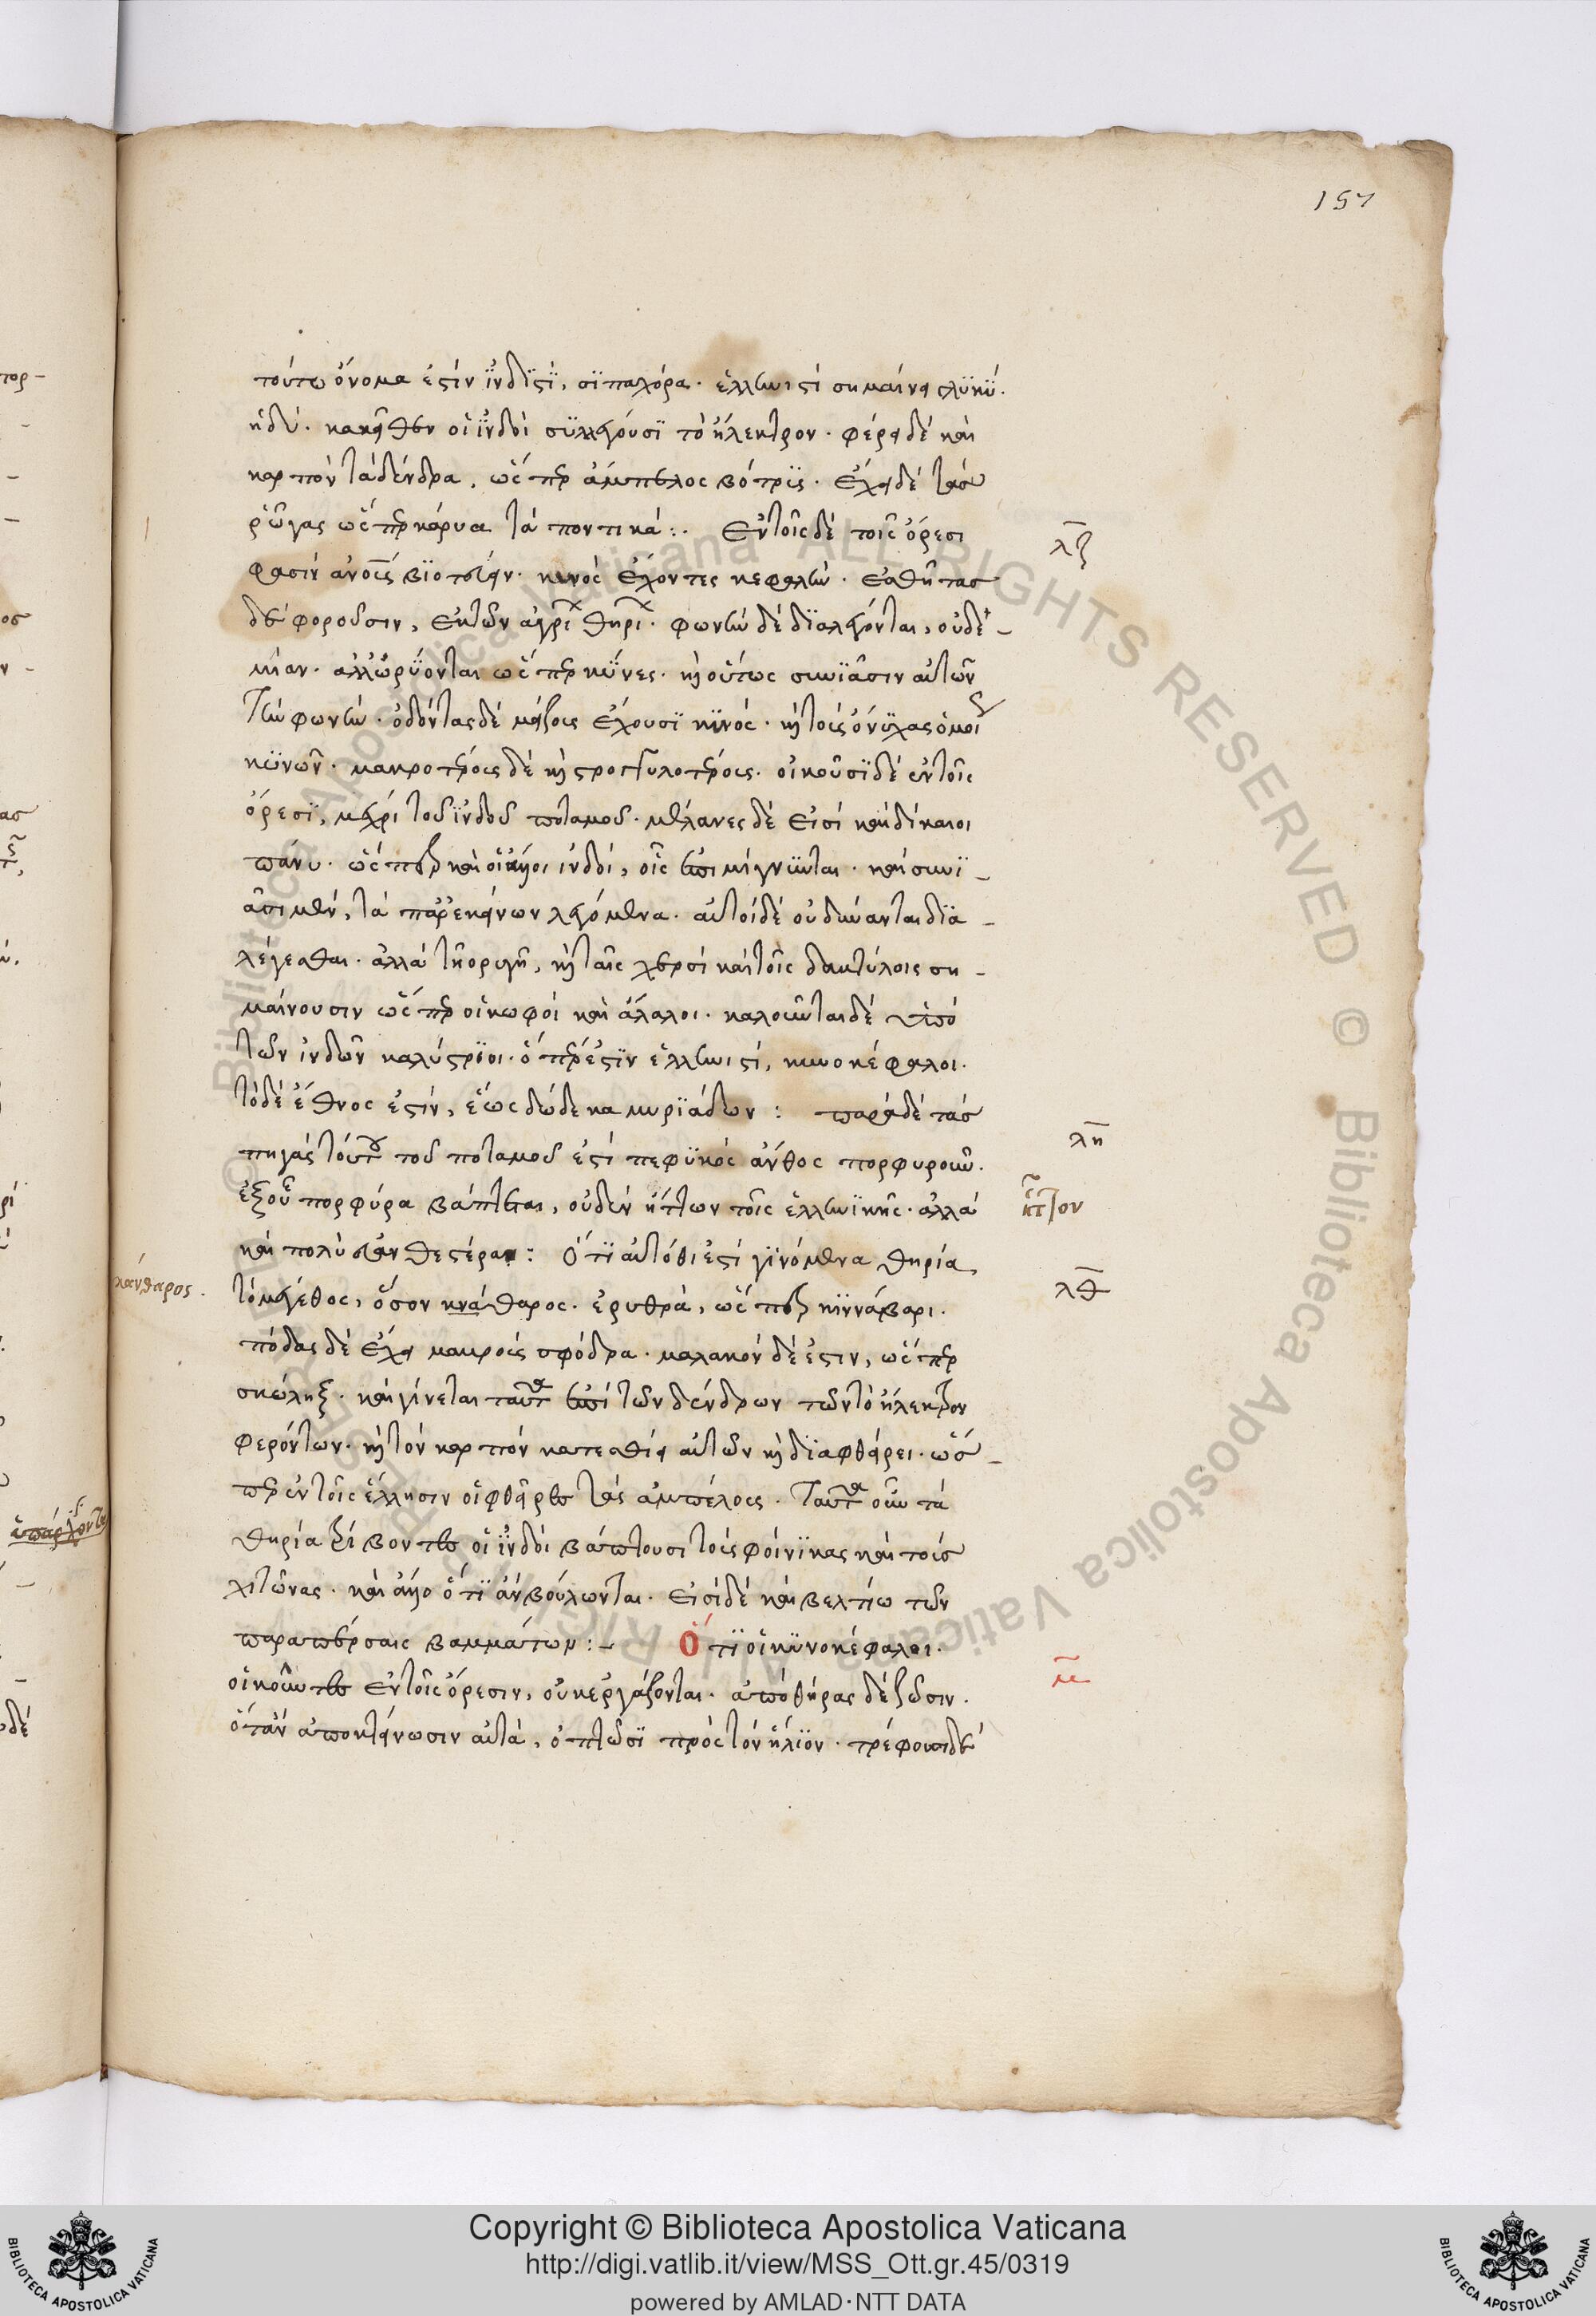 157
τούτω ὄνομα ἐστὶν ἰνδιστὶ, σιπαχόρα· ἑλληνιστὶ σημαίνει γλυκύ·
ἡδύ· κακεῖθεν οἱ ἰνδοὶ συλλέγουσι τὸ ἤλεκτρον· φέρει δὲ καὶ
καρπὸν τὰ δένδρα, ὥσπερ ἄμπελος βότρυς· ἔχει δὲ τὰς
ῥῶγας ὥσπερ κάρυα τὰ ποντικά:· Ἐν τοῖς δὲ τοῖς ὄρεσι
λζ
φασὶν ἀνους βιοτεύειν· κυνὸς ἔχοντες κεφαλήν· ἐσθῆτας
δὲ φοροῦσιν, ἐκ τῶν ἀγρι θηρι· φωνὴν δὲ διαλέγονται, οὐδε-
μίαν· ἀλλ' ὠρύονται ὥσπερ κύνες· καὶ οὕτως συνιᾶσιν αὐτῶν
τὴν φωνήν· ὀδόντας δὲ μείζους ἔχουσι κυνός· καὶ τοὺς ὄνυχας ὁμοι
κυνῶν· μακροτέρους δὲ καὶ στρογγυλοτέρους· οἰκοῦσι δὲ ἐν τοῖς
ὄρεσι, μέχρι τοῦ ἰνδοῦ ποταμοῦ· μέλανες δέ εἰσι καὶ δίκαιοι
πάνυ· ὥσπερ καὶ οἱ ἄλλοι ἰνδοὶ, οἷς ἐπιμίγνυνται· καὶ συνι-
ᾶσι μὲν, τὰ παρ' ἐκείνων λεγόμενα· αὐτοὶ δὲ οὐ δύνανται δια-
λέγεσθαι· ἀλλὰ τῇ ὀρυγῇ, καὶ ταῖς χερσὶ καὶ τοῖς δακτύλοις ση-
μαίνουσιν ὥσπερ οἱ κωφοὶ καὶ ἄλαλοι· καλοῦνται δὲ ὑπὸ
τῶν ἰνδῶν καλύστριοι· ὅπερ ἐστὶν ἑλληνιστὶ, κυνοκέφαλοι·
τὸ δὲ ἔθνος ἐστὶν, ἕως δώδεκα μυριάδων: παρὰ δὲ τὰς
λη
πηγὰς τούτου τοῦ ποταμοῦ ἐστὶ πεφυκὸς ἄνθος πορφυροῦν·
ἐξ οὗ πορφύρα βάπτεται, οὐδὲν ἥττων τοῖς ἑλληνικῆς· ἀλλὰ
ἧττον
καὶ πολὺ εὐανθεστέρα: Ὅτι αὐτόθι ἐστὶ γινόμενα θηρία,
λθ
κάνθαρος·
τὸ μέγεθος, ὅσον κνάθαρος· ἐρυθρὰ, ὥσπερ κιννάβαρι·
πόδας δὲ ἔχει μακροὺς σφόδρα· μαλακὸν δέ ἐστιν, ὥσπερ
σκώληξ· καὶ γίνεται ταῦτα ἐπὶ τῶν δένδρων τῶν τὸ ἤλεκτρον
φερόντων· καὶ τὸν καρπὸν κατεσθίει αὐτῶν καὶ διαφθείρει· ὥσ-
περ ἐν τοῖς ἕλλησιν οἱ φθεῖρες τὰς ἀμπέλους· Ταῦτα οὖν τὰ
θηρία τρίβοντες οἱ ἰνδοὶ βάπτουσι τοὺς φοίνικας καὶ τοὺς
χιτῶνας· καὶ ἄλλο ὅτι ἂν βούλωνται· εἰσὶ δὲ καὶ βελτίω τῶν
παρὰ πέρσαις βαμμάτων:- Ὅτι οἱ κυνοκέφαλοι·
μ
οἰκοῦντες ἐν τοῖς ὄρεσιν, οὐκ ἐργάζονται· ἀπὸ θήρας δὲ ζῶσιν·
ὅταν ἀποκτείνωσιν αὐτὰ, ὀπτῶσι πρὸς τὸν ἥλιον· τρέφουσι δὲ
Copyright © Biblioteca Apostolica Vaticana
http://digi.vatlib.it/view/MSS_Ott.gr.45/0319
powered by AMLAD·NTT DATA